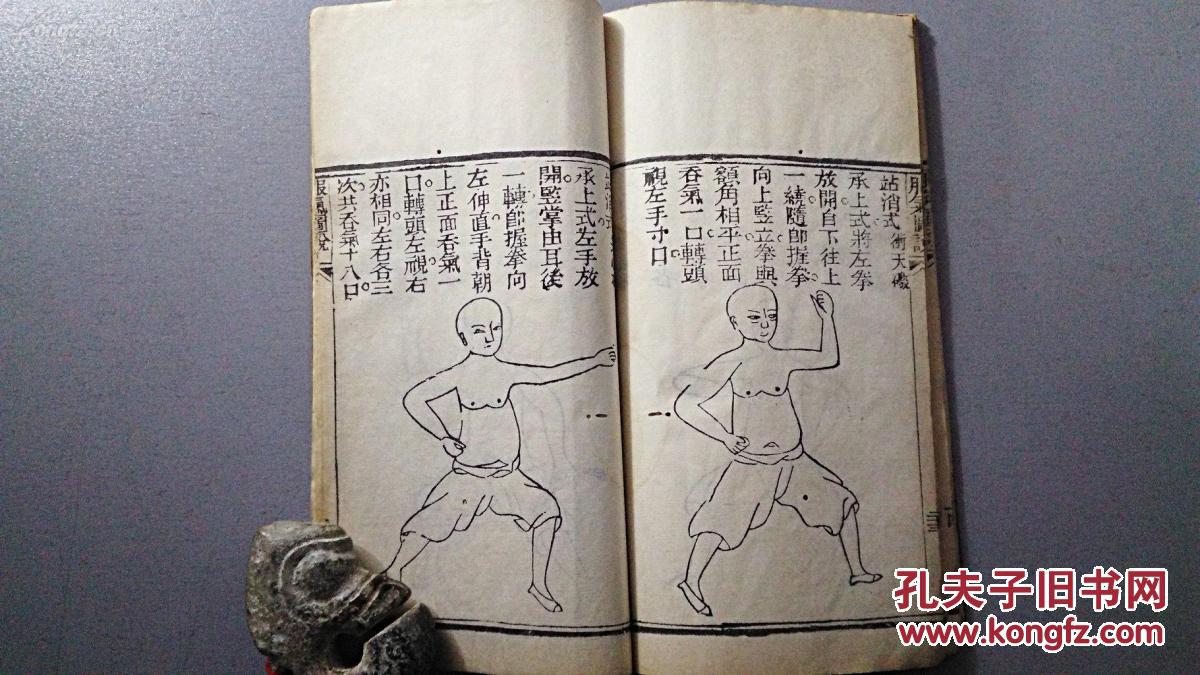 站消式 衝天礮
承上式將左拳
放開自下往上
一繞隨卽握拳
向上竪立拳與
額角相平正面
吞氣一口轉頭
視左手寸口
承上式左手放
開竪掌由耳後
一轉卽握拳向
左伸直手背朝
上正面吞氣一
口轉頭左視右
亦相同左右各三
次共吞氣十八口
服氣圖說
孔夫子旧书网
www.kongfz.com